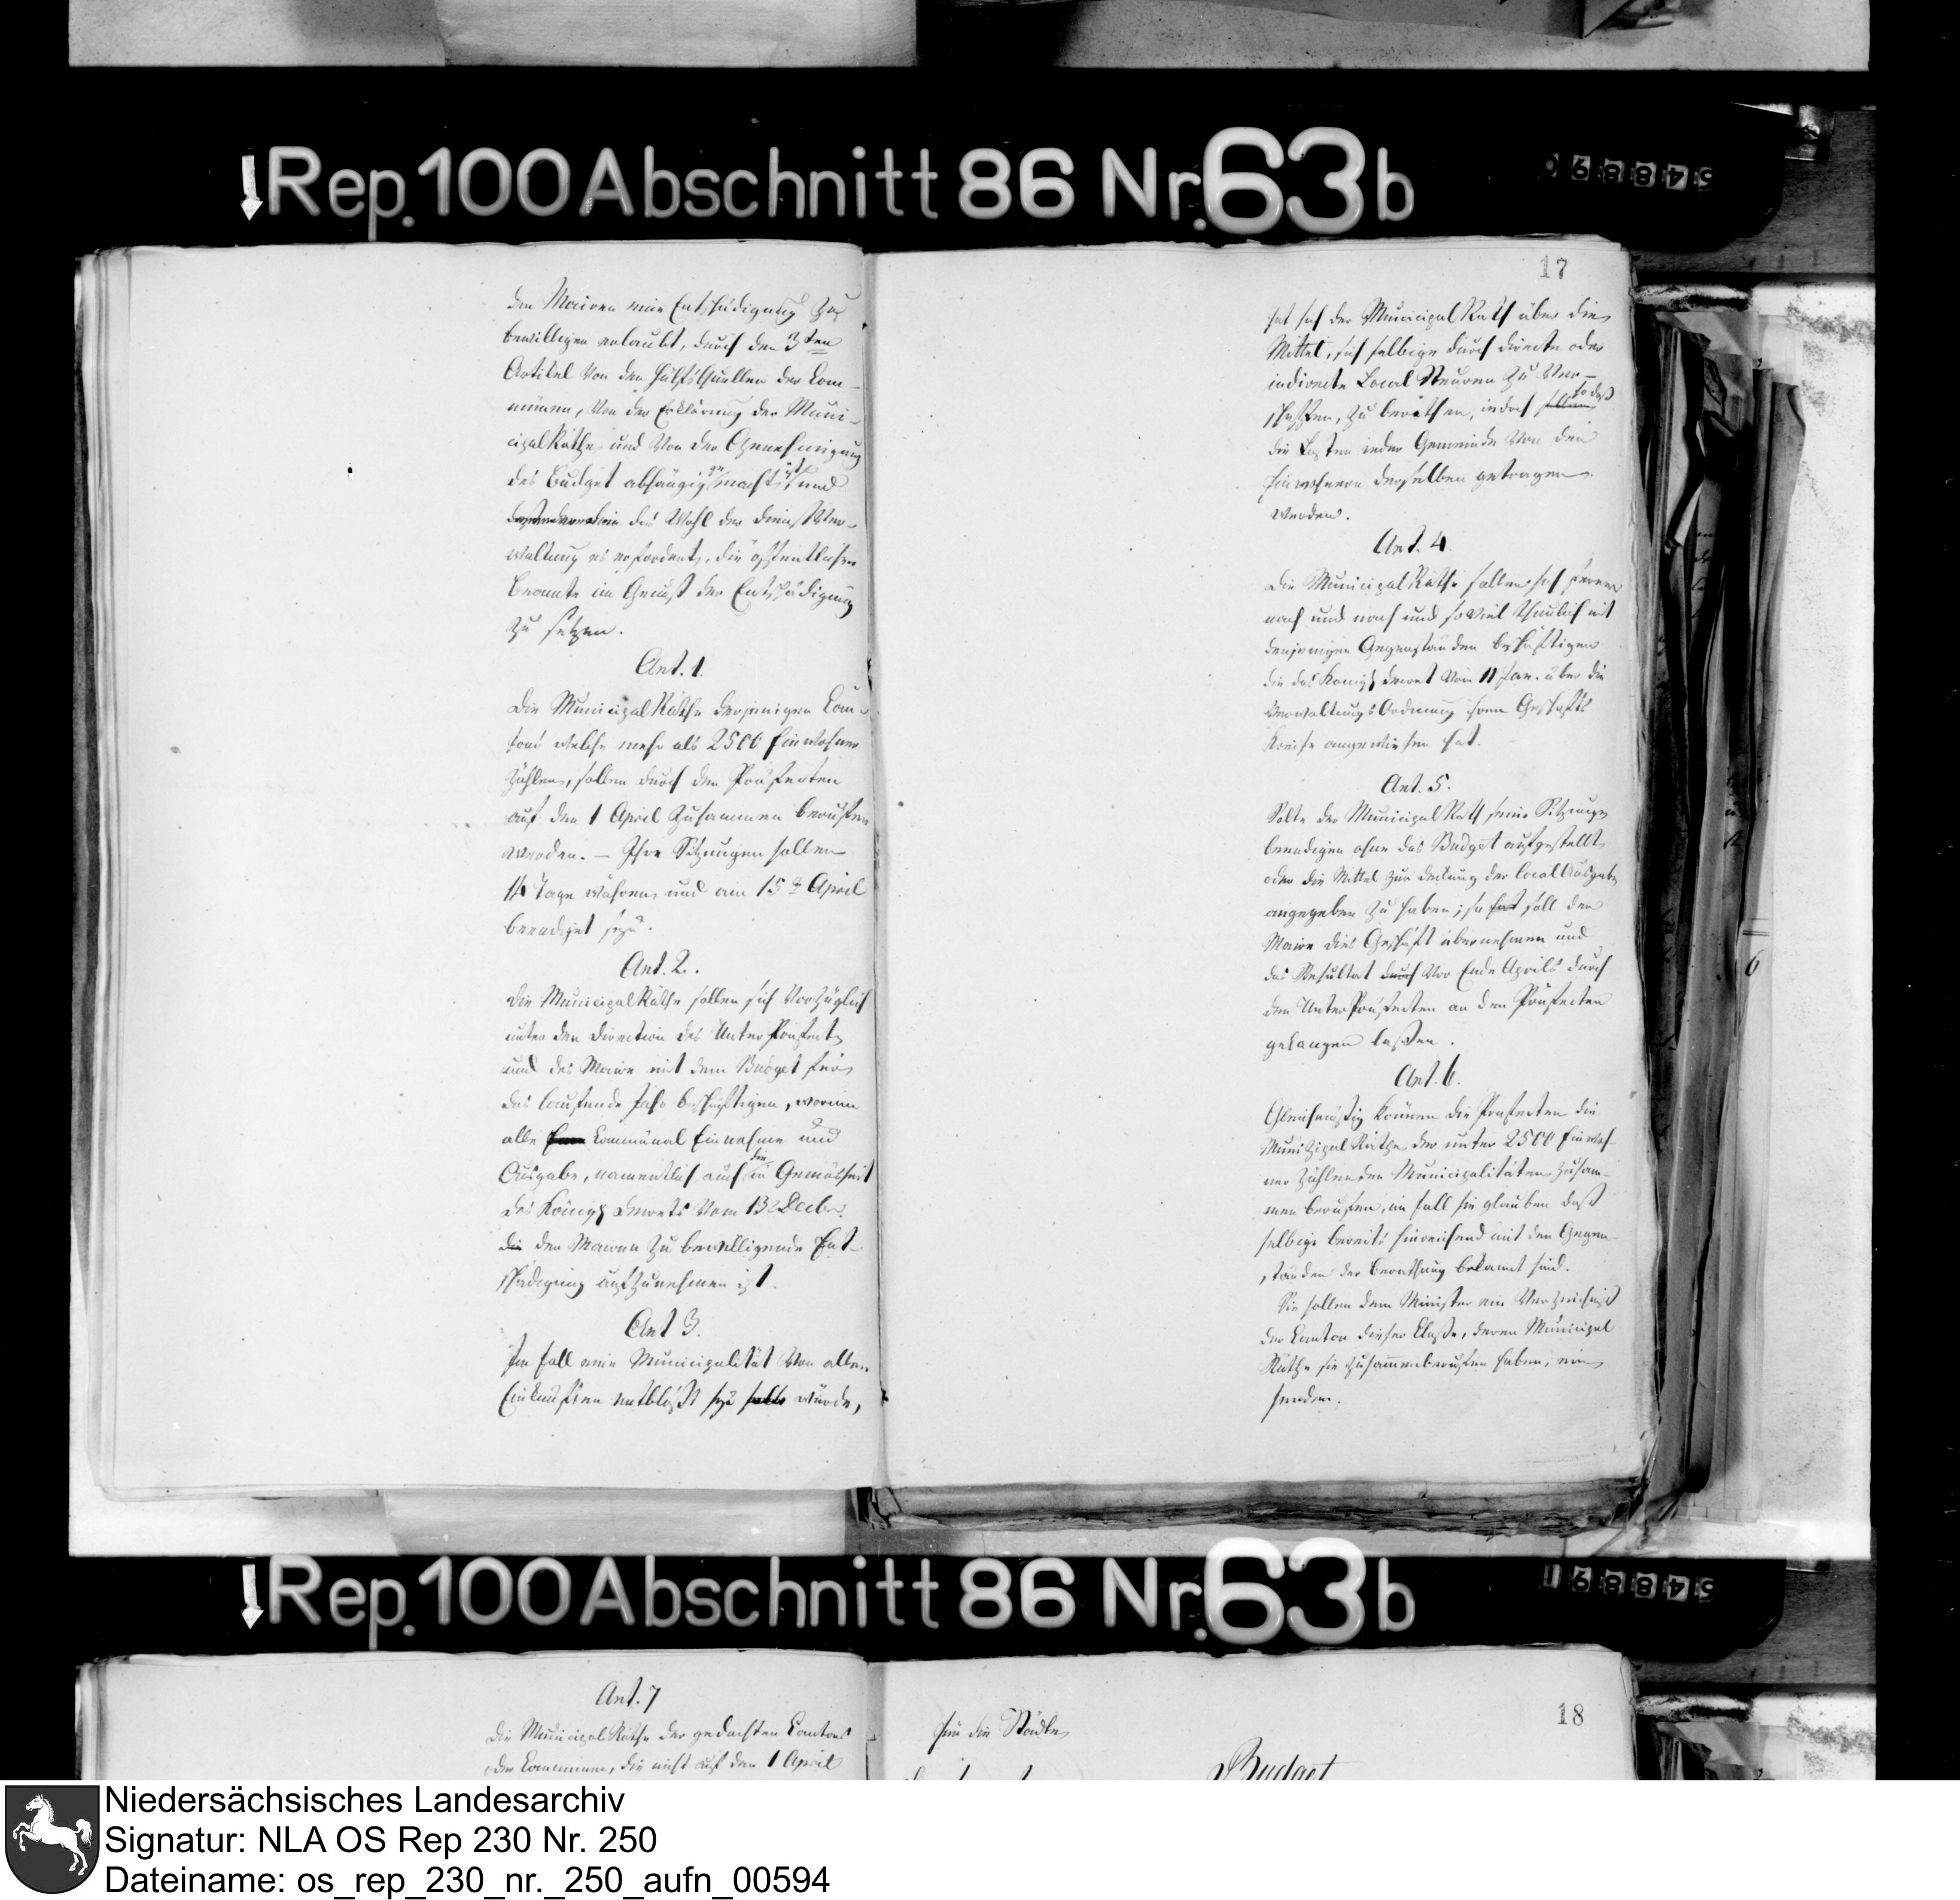 Rep. 100 Abschnitt 86 Nr. 63 b
548890
den Mairen eine Entschädigung zu
bewilligen erlaubt, durch den 3ten
Artikel von den Hülfsquellen der Com-
munen, von der Erklärung der Muni-
cipalRäthe und von der Genehmigung
des Budget abhängig gemacht ist, und
das Wohl der Verwaltung
waltung es erfordert, die öffentlichen
Beamte im Genuß der Entschädigung
zu setzen.
Art. 1.
Die MunicipalRäthe derjenigen Can-
tons welche mehr als 2500 Einwohner
zählen, sollen durch den Präfecten
auf den 1 April zusammen berufen
werden. – Ihre Sitzungen sollen
14 Tage währen und am 15t April
beendiget seyn.
Art. 2.
Die MunicipalRäthe sollen sich vorzüglich
unter der Direction des UnterPräfects
und des Maire mit dem Budget für
das laufende Jahr beschäftigen, worin
alle Communal Einnahme und
Ausgabe, namentlich auch die in Gemäsheit
des Königl Decrets vom 13t Decbr.
die den Mairen zu bewilligende Ent-
schädigung aufzunehmen ist.
Art 3.
Im Fall eine Municipalität von allen
Einkünften entblößt seyn sollte würde,
17
hat sich der MunicipalRath über die
Mittel, sich selbige durch directe oder
indirecte Local Steuren zu ver-
schaffen, zu berathen, indoch so daß
die Lasten jeder Gemeinde von den
Einwohnern derselben getragen
werden.
Art. 4
Die MunicipalRäthe sollen sich ferner
nach und nach und so viel thunlich mit
denjenigen Gegenständen beschäftigen
die das Königl Decret vom 11 Jan. über die
VerwaltungsOrdnung ihrem Geschäfts
Kreise angewiesen hat.
Art. 5.
Solte der MunicipalRath seine Sitzungen
beendigen ohne das Budget aufgestellt
oder die Mittel zur Deckung der LocalAusgabe
angegeben zu haben; so hat soll der
Maire dies Geschäft übernehmen und
das Resultat durch vor Ende Aprils durch
den UnterPräfecten an den Präfecten
gelangen laßen.
Art. 6.
Gleichmäßig können die Präfecten die
MunizipalRäthe der unter 2500 Einwoh-
ner zählenden Municipalitäten zusam-
men berufen, im Fall sie glauben daß
selbige bereits hinreichend mit den Gegen-
ständen der Berathung bekannt sind.
Sie sollen dem Minister ein Verzeichniß
der Canton dieser Claße, deren Municipal
Räthe sie zusammenberufen haben, ein
senden.
6
Rep. 100 Abschnitt 86 Nr. 63 b
548891
Art. 7
Die MunicipalRäthe der gedachten Cantons
oder Communen, die nicht auf den 1 April
18
Für die Städte
Budget
Niedersächsisches Landesarchiv
Signatur: NLA OS Rep 230 Nr. 250
Dateiname: os_rep_230_nr._250_aufn_00594